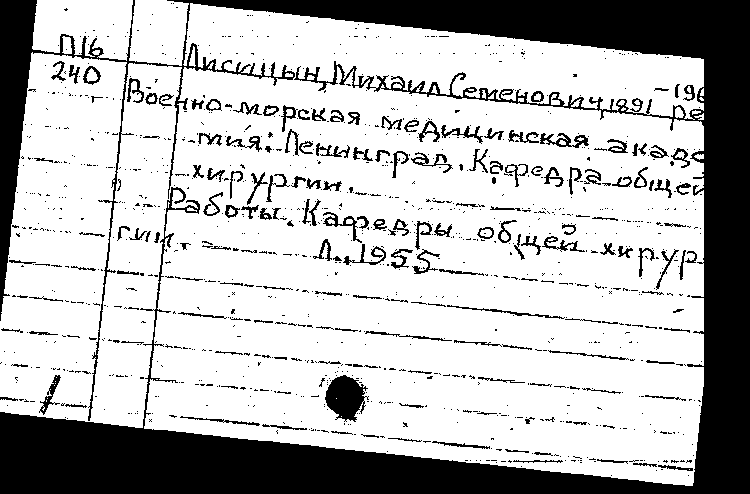 П16
240
Лисицын, Михаил Семенович, 1891 – 196
ре
Военно-морская медицинская акаде
мия. Ленинград. Кафедра общей
хирургии.
Работы. Кафедры общей хирур-
гии. – Л., 1955